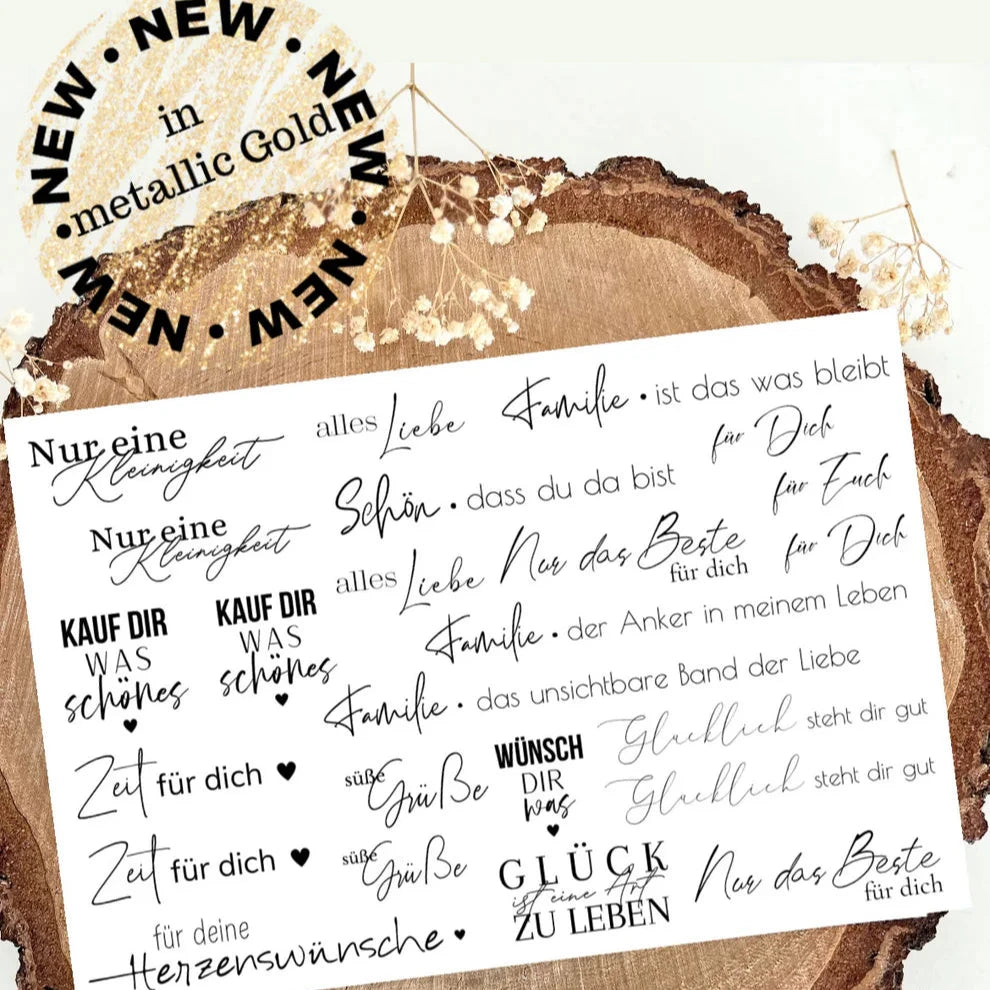 NEW • NEW • NEW • NEW • NEW • NEW • NEW •
in
metallic Gold
Nur eine
Kleinigkeit
alles Liebe
Familie • ist das was bleibt
für Dich
Nur eine
Kleinigkeit
Schön • dass du da bist
für Euch
alles Liebe
Nur das Beste
für dich
für Dich
KAUF DIR
WAS
schönes
KAUF DIR
WAS
schönes
Familie • der Anker in meinem Leben
Familie • das unsichtbare Band der Liebe
Zeit für dich
süße
Grüße
WÜNSCH
DIR
was
Glücklich steht dir gut
Glücklich steht dir gut
Zeit für dich
süße
Grüße
GLÜCK
ist eine Art
ZU LEBEN
Nur das Beste
für dich
für deine
Herzenswünsche